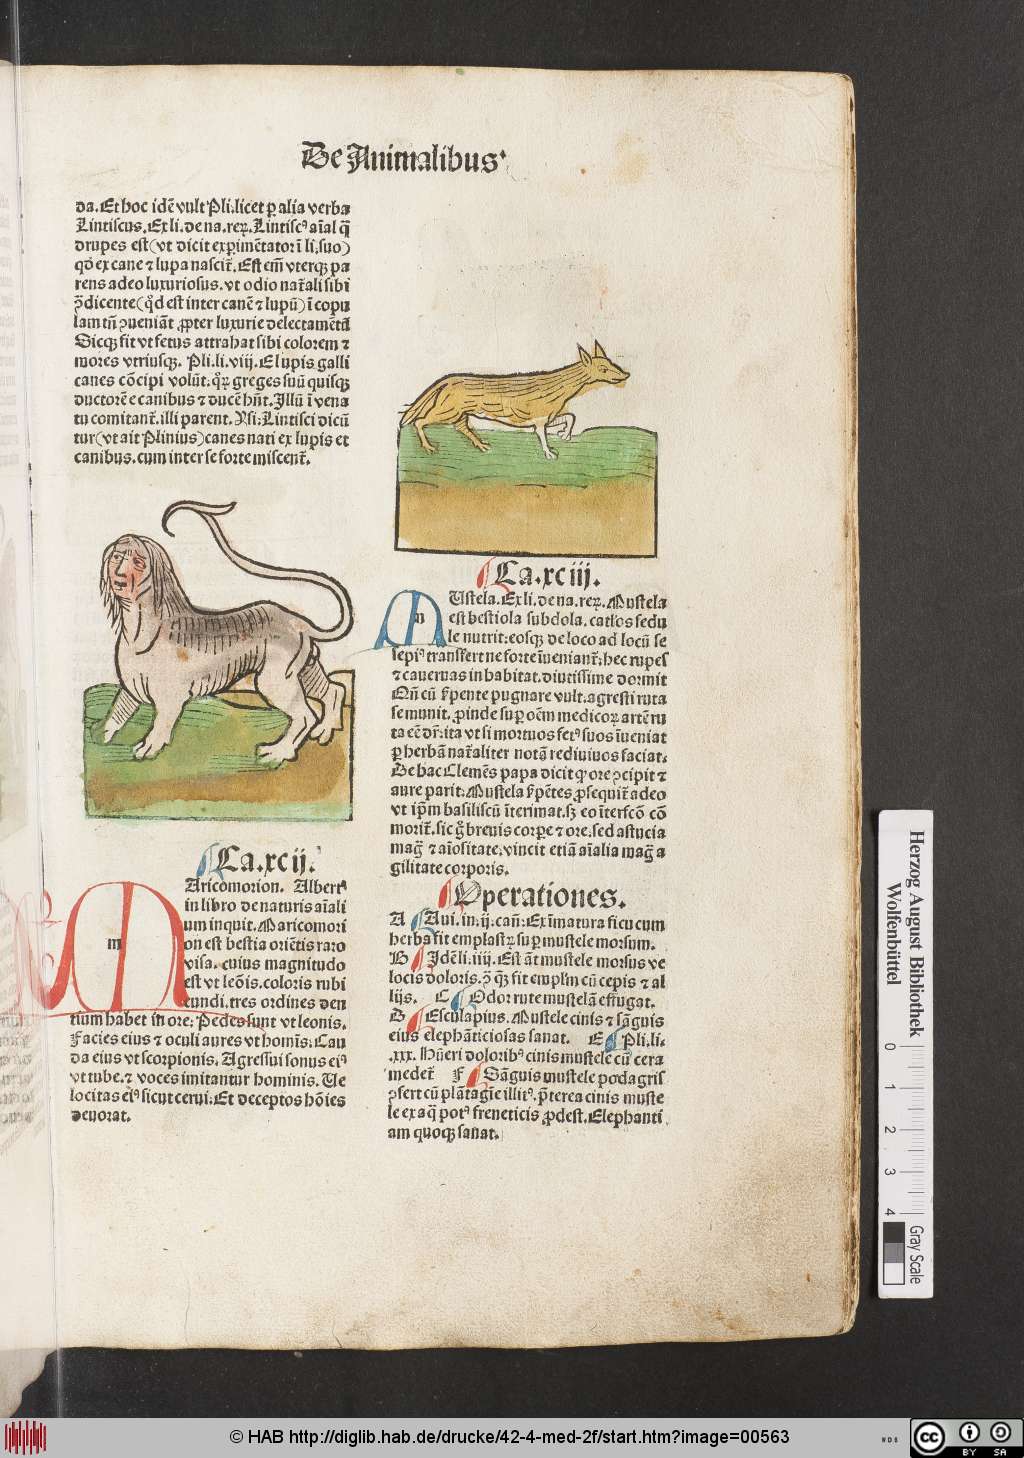 De Animalibus
da. Et hoc idē vult Pli. licet ꝑ alia verba
Lintiscus. Ex li. de na. reꝝ. Lintisc⁹ aīal q̄
drupes est (vt dicit exꝑimētatorī li. suo)
ꝙ ex cane ⁊ lupa nascit̄. Est em̄ vterqꝫ pa
rens adeo luxuriosus. vt odio nat̄ali sibi
p̄dicente (qd̓ est inter canē ⁊ lupū) ī copu
lam tn̄ ꝯueniāt ꝓpter luxurie delectamētā
Sicqꝫ fit vt fetus attrahat sibi colorem ⁊
mores vtriusqꝫ. Pli. li. viij. E lupis galli
canes cōcipi volūt: qͦꝝ greges suū quisqꝫ
ductorē e canibus ⁊ ducē hn̄t. Illū ī vena
tu comitant̄. illi parent. Nsi: Lintisci dicū
tur (vt ait Plinius) canes nati ex lupis et
canibus. cum inter se forte miscent̄.
Ca. xcij.
m Aricomorion. Albert⁹
in libro de naturis aīali
um inquit. Maricomori
on est bestia oriētis raro
visa. cuius magnitudo
est vt leōis. coloris rubi
cundi. tres ordines den
tium habet in ore: Pedes sunt vt leonis.
Facies eius ⁊ oculi aures vt homīs: Cau
da eius vt scorpionis. Agressui sonus ei⁹
vt tube. ⁊ voces imitantur hominis. Ve
locitas ei⁹ sicut cerui: Et deceptos hōies
deuorat.
Ca. xciij.
m Ustela. Ex li. de na. reꝝ. Mustela
est bestiola subdola. catl̓os sedu
le nutrit: eosqꝫ de loco ad locū se
sepi⁹ transfert ne forte īueniant̄: hec rupes
⁊ cauernas inhabitat. diutissime dormit
Qn̄ cū s̓pente pugnare vult. agresti ruta
se munit. ꝓinde suꝑ oēm medicoꝝ artē ru
ta eē dr̄: ita vt si mortuos fet⁹ suos īueniat
ꝑ herbā nat̄aliter notā rediuiuos faciat.
De hac Clemēs papa dicit ꝙ ore ꝯcipit ⁊
aure parit: Mustela s̓pētes ꝓsequit̄ adeo
vt ip̄m basiliscū īterimat. sꝫ eo īterfcō cō
morit̄. sic gͦ breuis corꝑe ⁊ ore. sed astucia
mag ⁊ aīositate. vincit etiā aīalia mag a
gilitate corporis.
Operationes.
A Aui. in. ij. can̄: Ex īmatura ficu cum
herba fit emplastꝝ suꝑ mustele morsum.
B Idē li. iiij. Est āt mustele morsus ve
locis doloris. ꝯ quē fit empl̄m cū cepis ⁊ al
lijs. C Odor rute mustelā effugat.
D Esculapius. Mustele cinis ⁊ sāguis
eius elephāticiosas sanat. E Pli. li.
.xxx. Hūeri dolorib⁹ cinis mustele cū cera
medet̄ F Sāguis mustele podagris
ꝯfert cū plātagīe illit⁹. p̄terea cinis muste
le ex aq̄ pot⁹ freneticis ꝓdest. Elephanti
am quoqꝫ sanat.
Herzog August Bibliothek
Wolfenbüttel
0 1 2 3 4
Gray Scale
© HAB http://diglib.hab.de/drucke/42-4-med-2f/start.htm?image=00563
WDB
cc BY SA